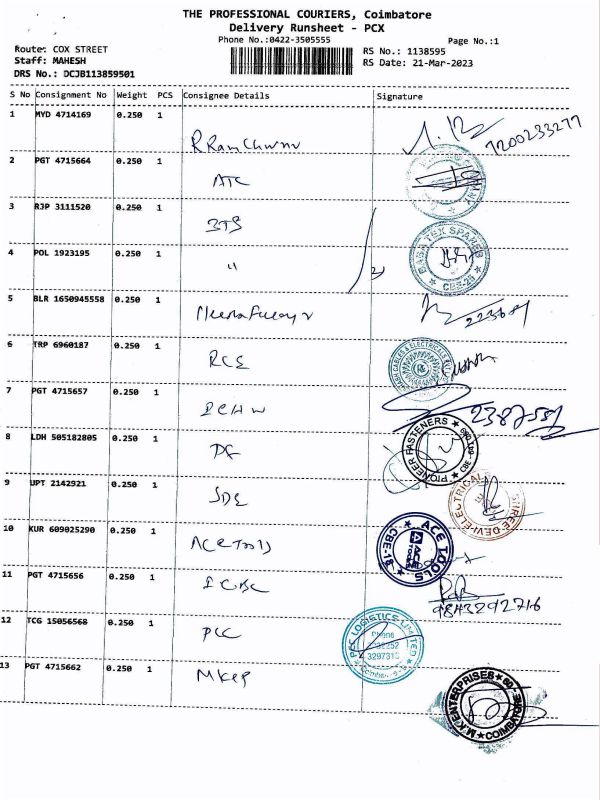 THE PROFESSIONAL COURIERS, Coimbatore
Delivery Runsheet - PCX
Phone No.:0422-3505555
Page No.:1
Route: COX STREET
RS No.: 1138595
Staff: MAHESH
RS Date: 21-Mar-2023
DRS No.: DCJB113859501
S No Consignment No Weight PCS Consignee Details Signature
1 MYD 4714169 0.250 1
7200233277
2 PGT 4715664 0.250 1
ATC
3 RJP 3111520 0.250 1
BTS
BABA TEX SPARES
CBE-25
4 POL 1923195 0.250 1
"
5 BLR 1650945558 0.250 1
6 TRP 6960187 0.250 1
RCE
CABLES & ELECTRICALS
7 PGT 4715657 0.250 1
8 LDH 505182805 0.250 1
PF
PIONEER FASTENERS
9 UPT 2142921 0.250 1
SDE
SHREE DEVI ELECTRICAL
10 KUR 609025290 0.250 1
Ace Tools
ACE TOOLS
CBE-18
11 PGT 4715656 0.250 1
9843292716
12 TCG 15056568 0.250 1
PLC
LOGISTICS LIMITED
Phone
13 PGT 4715662 0.250 1
M.K ENTERPRISES
COIMBATORE